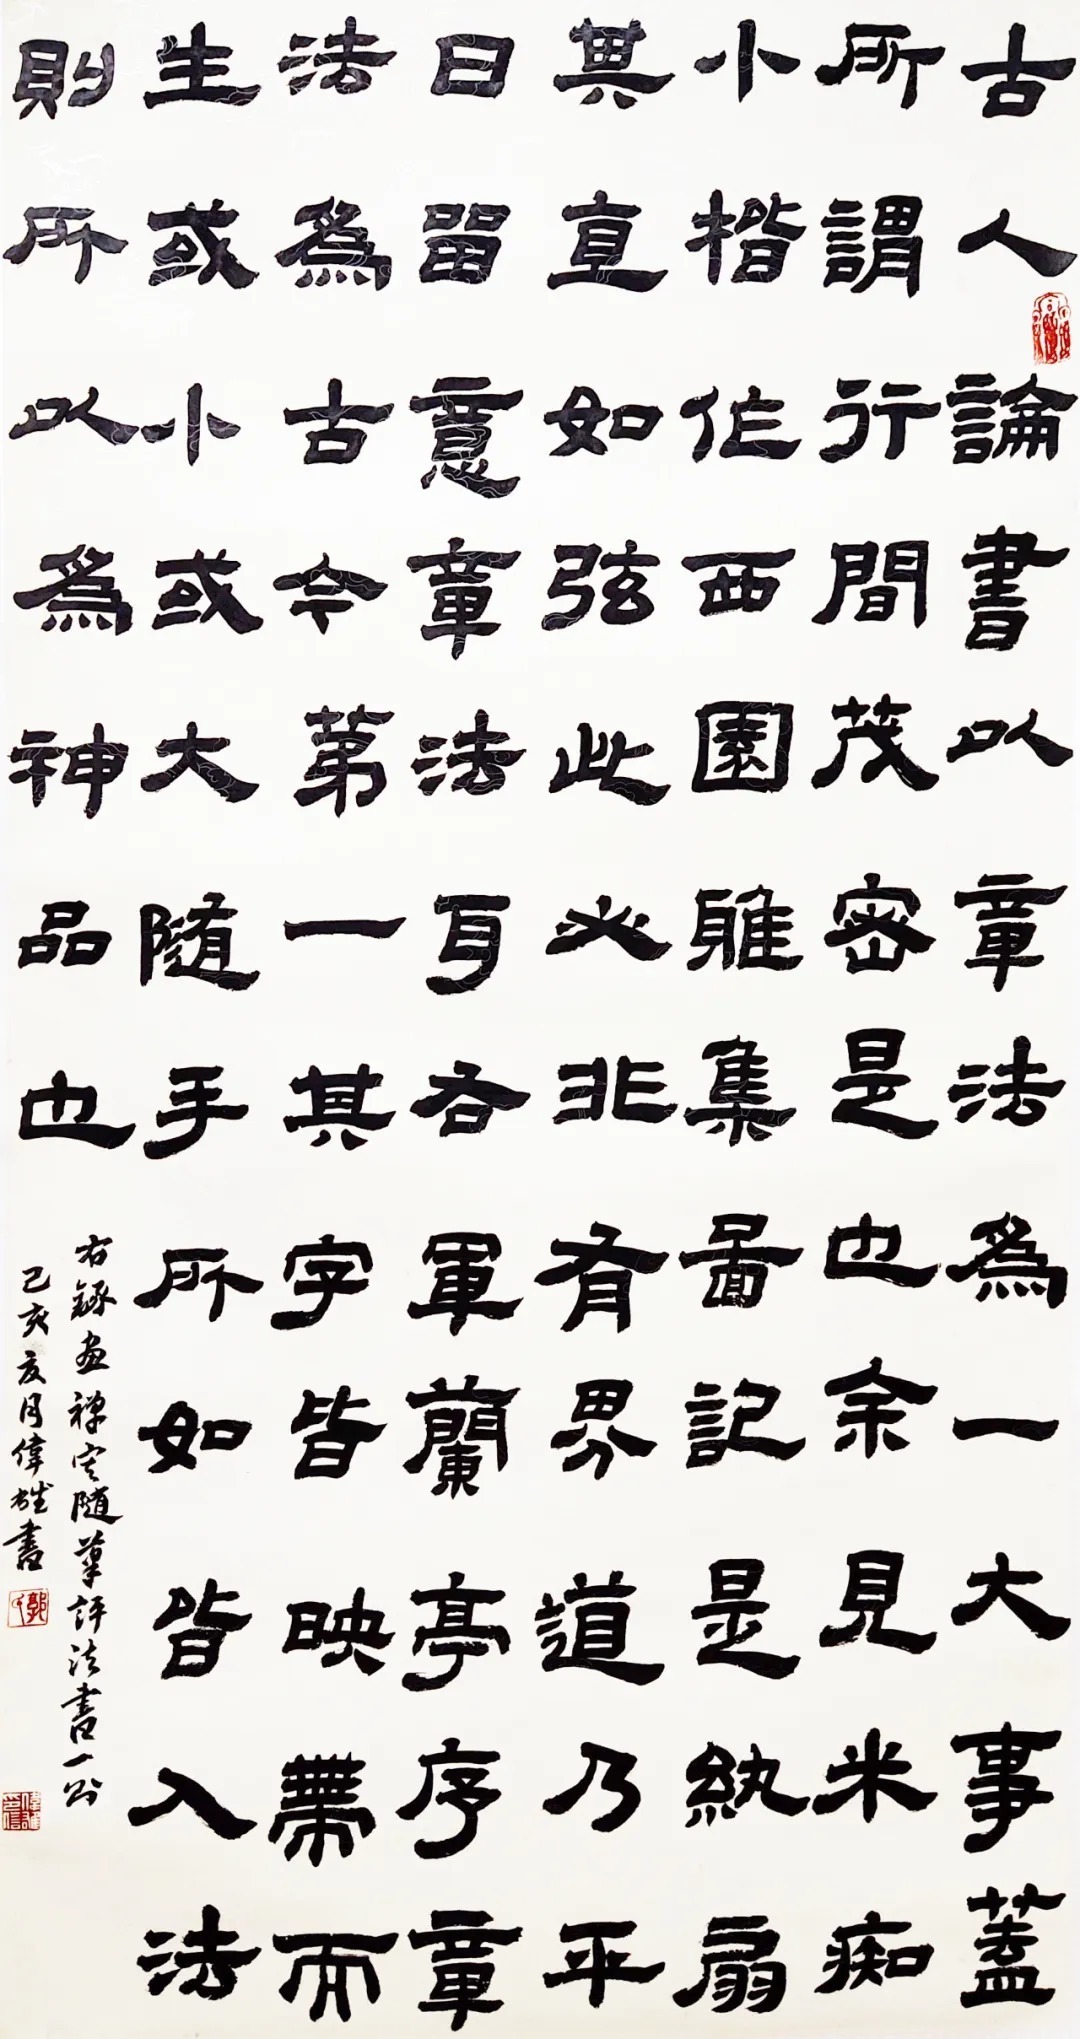 古人論書以章法為一大事蓋
所謂行間茂密是也余見米痴
小楷作西園雅集圖記是紈扇
其直如弦此必非有界道乃平
日留意章法耳右軍蘭亭序章
法為古今第一其字皆映帶而
生或小或大隨手所如皆入法
則所以為神品也
右錄畫禪室隨筆評法書一則
己亥夏月偉雄書